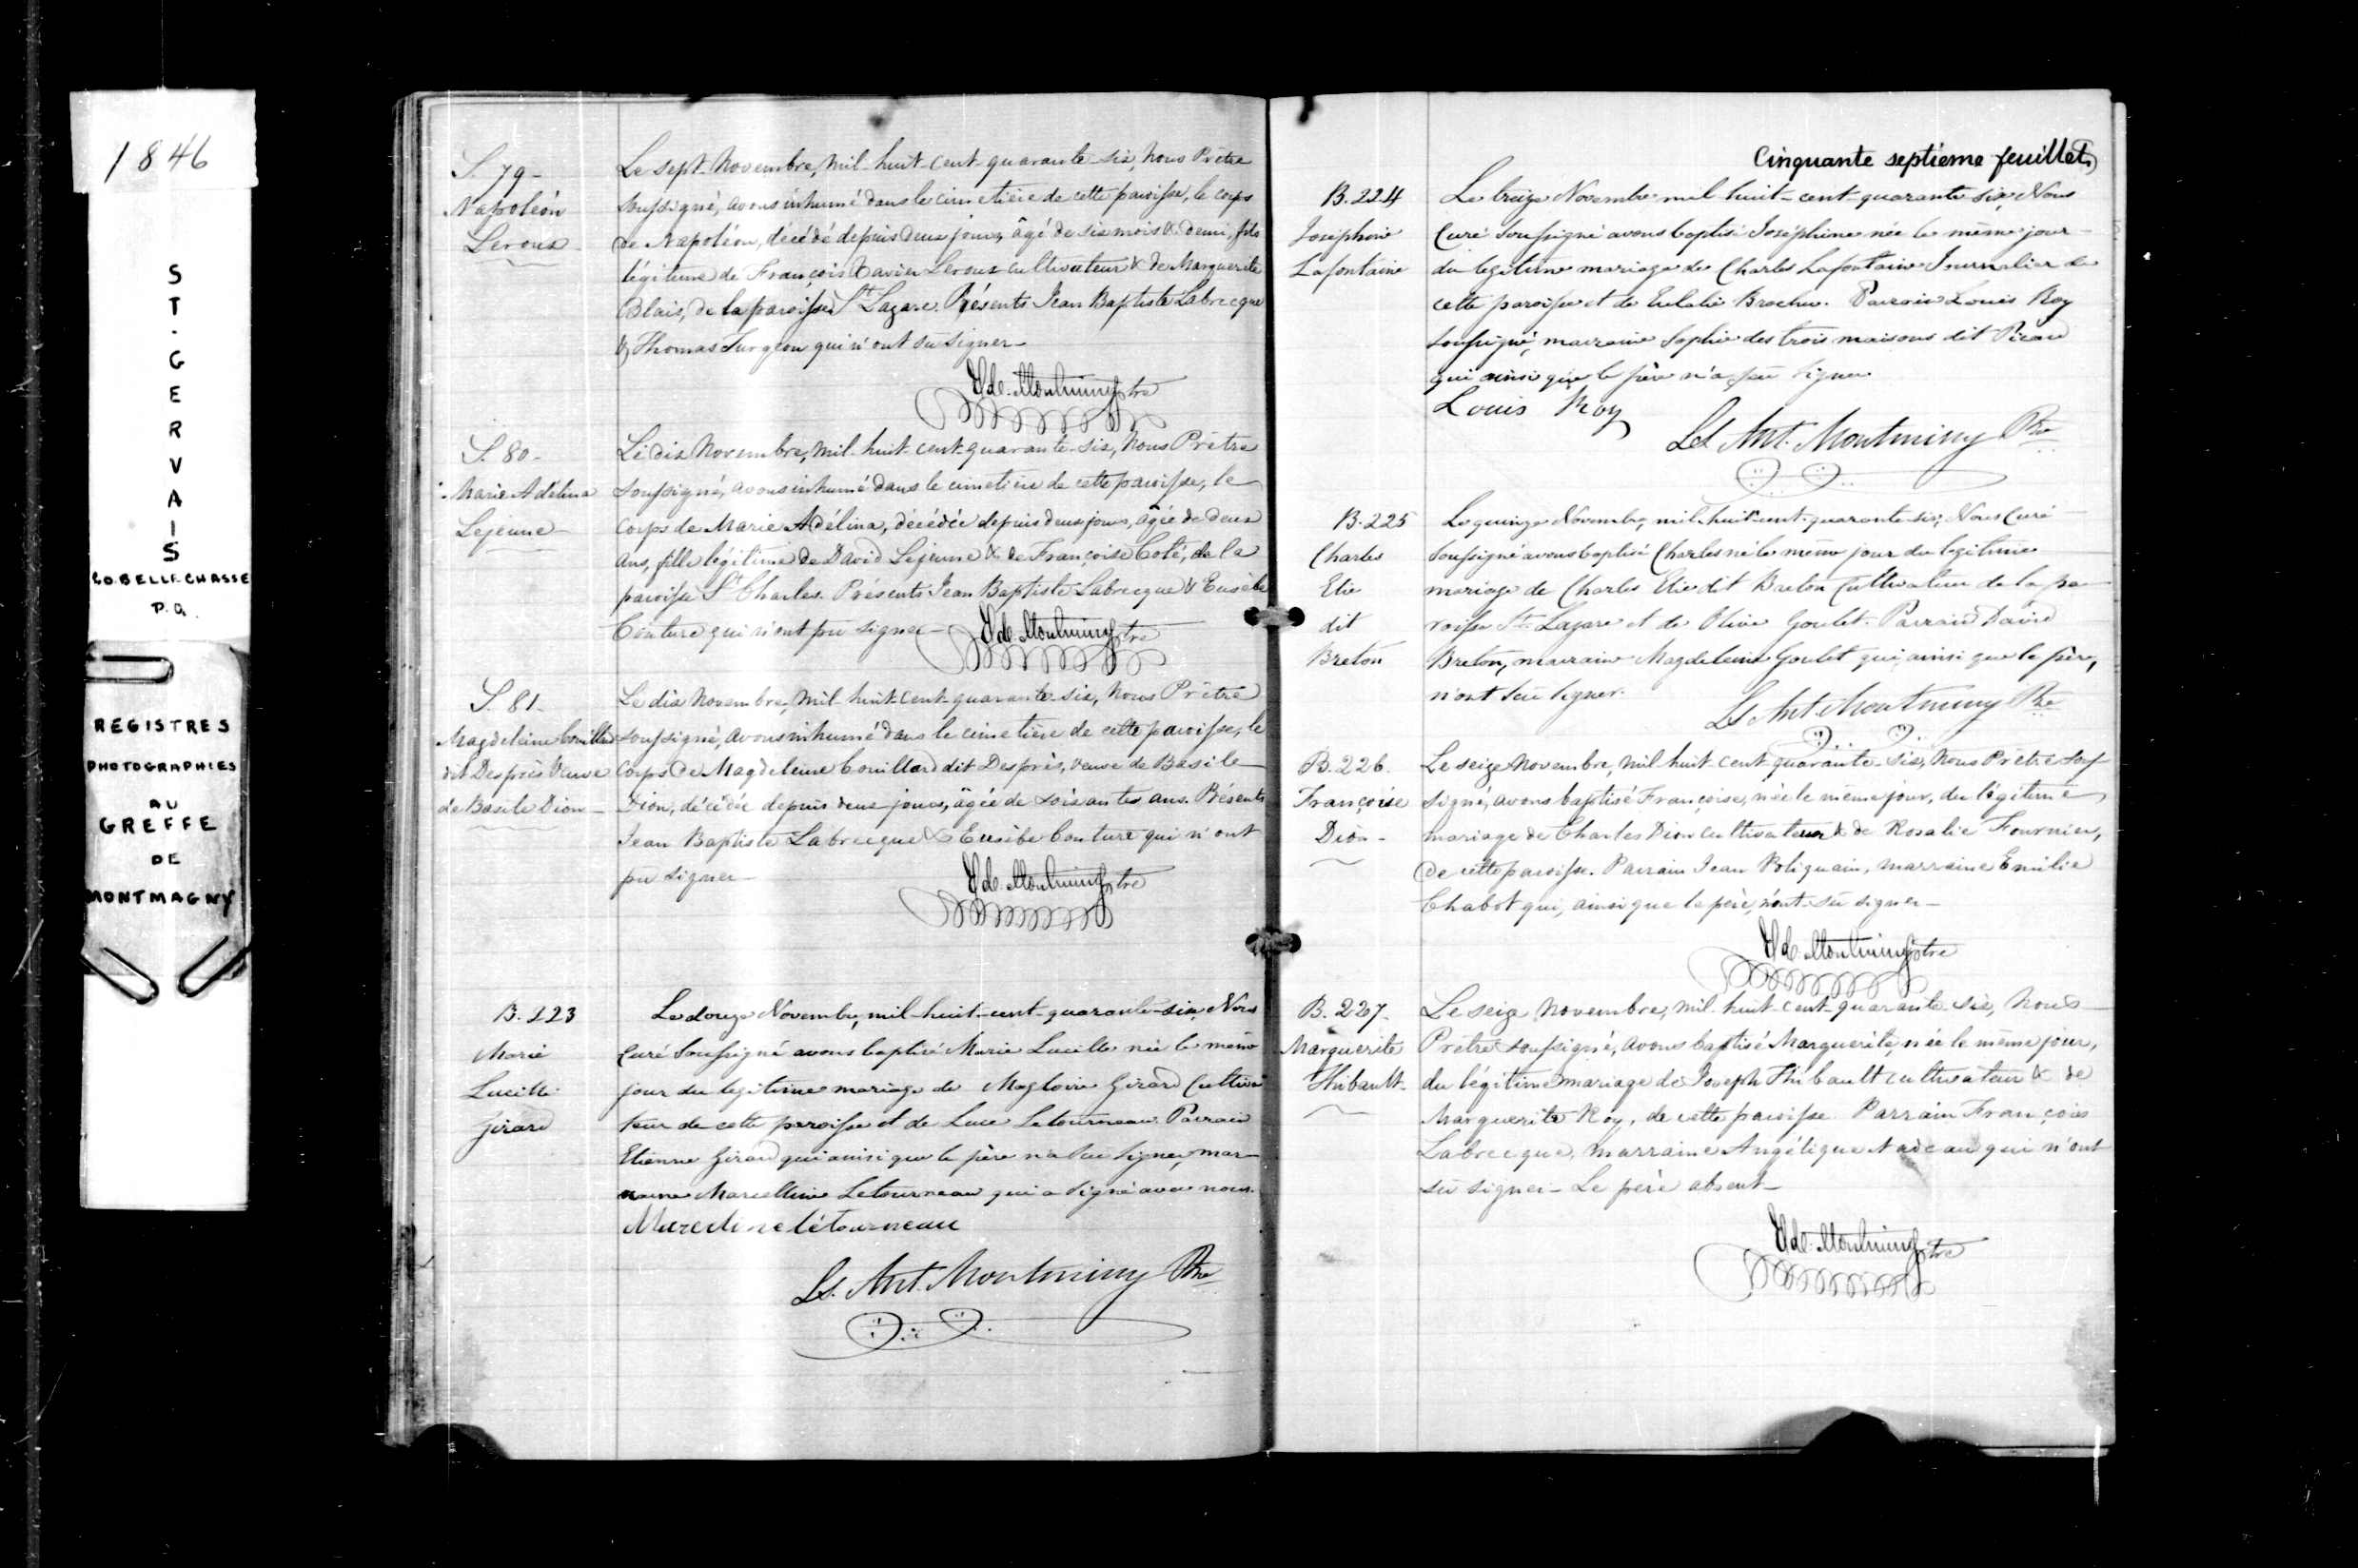 1846
ST. GERVAIS
CO. BELLECHASSE
P.Q.
REGISTRES
PHOTOGRAPHIES
AU
GREFFE
DE
MONTMAGNY
S. 79-
Napoléon
Leroux
Le sept Novembre, mil-huit-cent-quarante-six, Nous Prêtre
soussigné, avons inhumé dans le cimetière de cette paroisse, le corps
de Napoléon, décédé depuis deux jours, âgé de six mois & demi, fils
légitime de François Xavier Leroux cultivateur & de Marguerite
Blais, de la paroisse St Lazare. Présents Jean Baptiste Labrecque
& Thomas Turgeon qui n'ont su signer-
Montminy Ptre
S. 80-
Marie Adélina
Lejeune
Le dix Novembre, mil-huit-cent-quarante-six, Nous Prêtre
soussigné, avons inhumé dans le cimetière de cette paroisse, le
corps de Marie Adélina, décédée depuis deux jours, âgée de deux
ans, fille légitime de David Lejeune & de Françoise Coté, de la
paroisse St Charles. Présents Jean Baptiste Labrecque & Eusèbe
Couture qui n'ont pu signer-
Montminy Ptre
S. 81-
Magdeleine Couillard
dit Desprès Veuve
de Basile Dion-
Le dix Novembre, mil-huit-cent-quarante-six, Nous Prêtre
soussigné, avons inhumé dans le cimetière de cette paroisse, le
Corps de Magdeleine Couillard dit Desprès, veuve de Basile
Dion, décédée depuis deux jours, âgée de soixantes ans. Présents
Jean Baptiste Labrecque & Eusèbe Couture qui n'ont
pu signer-
Montminy Ptre
B. 223
Marie
Lucille
Girard
Le douze Novembre, mil-huit-cent-quarante-six Nous
Curé Soussigné avons baptisé Marie Lucille née le même
jour du legitime mariage de Magloire Girard Cultiva
teur de cette paroisse et de Luce Letourneau. Parrain
Etienne Girard qui ainsi que le père n'a su signer, mar-
raine Marcelline Letourneau qui a signé avec nous.
Marceline létourneau
Ls. Ant. Montminy Ptre
Cinquante septième feuillet
B. 224
Joséphine
Lafontaine
Le treize Novembre mil-huit-cent-quarante-six, Nous
Curé soussigné avons baptisé Joséphine née le même jour-
du legitime mariage de Charles Lafontaine Journalier de
cette paroisse et de Eulalie Brochu. Parrain Louis Roy
soussigné, marraine Sophie des trois maisons dit Picard
qui ainsi que le père n'a su signer
Louis Roy
Ls Ant. Montminy Ptre
B. 225
Charles
Elie
dit
Breton
Le quinze Novembre, mil-huit-cent-quarante-six, Nous Curé
Soussigné avons baptisé Charles né le même jour du legitime
mariage de Charles Elie dit Breton Cultivateur de la pa-
roisse St Lazare et de Olive Goulet. Parrain David
Breton, marraine Magdeleine Goulet qui, ainsi que le père,
n'ont su signer.
Ls Ant Montminy Ptre
B. 226.
Françoise
Dion-
Le seize Novembre, mil-huit-cent-quarante-six, Nous Prêtre sous
signé, avons baptisé Françoise, née le même jour, du légitime
mariage de Charles Dion cultivateur & de Rosalie Fournier,
de cette paroisse. Parrain Jean Poliquain, marraine Emilie
Chabot qui, ainsi que le père, n'ont su signer-
Montminy Ptre
B. 227.
Marguerite
Thibault-
Le seize Novembre, mil-huit-cent-quarante-six, Nous
Prêtre soussigné, avons baptisé Marguerite, née le même jour,
du légitime mariage de Joseph Thibault cultivateur & de
Marguerite Roy, de cette paroisse. Parrain François
Labrecque, marraine Angélique Nadeau qui n'ont
su signer- Le père absent-
Montminy Ptre